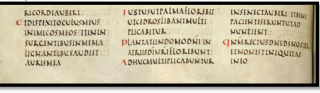 RICORDIAUBERI:
ETDISPEXITOCULUSMEUS
INIMICOSMEOS ITININ
SURGENTIBUSINMEMA
LIGNANTIBUSAUDIET
AURISMEA
IUSTUSUTPALMAFLOREBIT
UTCEDROSLIBANIMULTI
PLICABITUR
PLANTATIINDOMODNI IN
ATRIISDINRIFLOREBUNT:
ADHUCMULTIPLICABUNTUR
INSENECTAUBERI ITBENE
PATIENTESERUNTUTAD
NUNTIENT:
QNMRECTUSDNSDSNOSTER
ETNONESTINIQUITAS
INEO